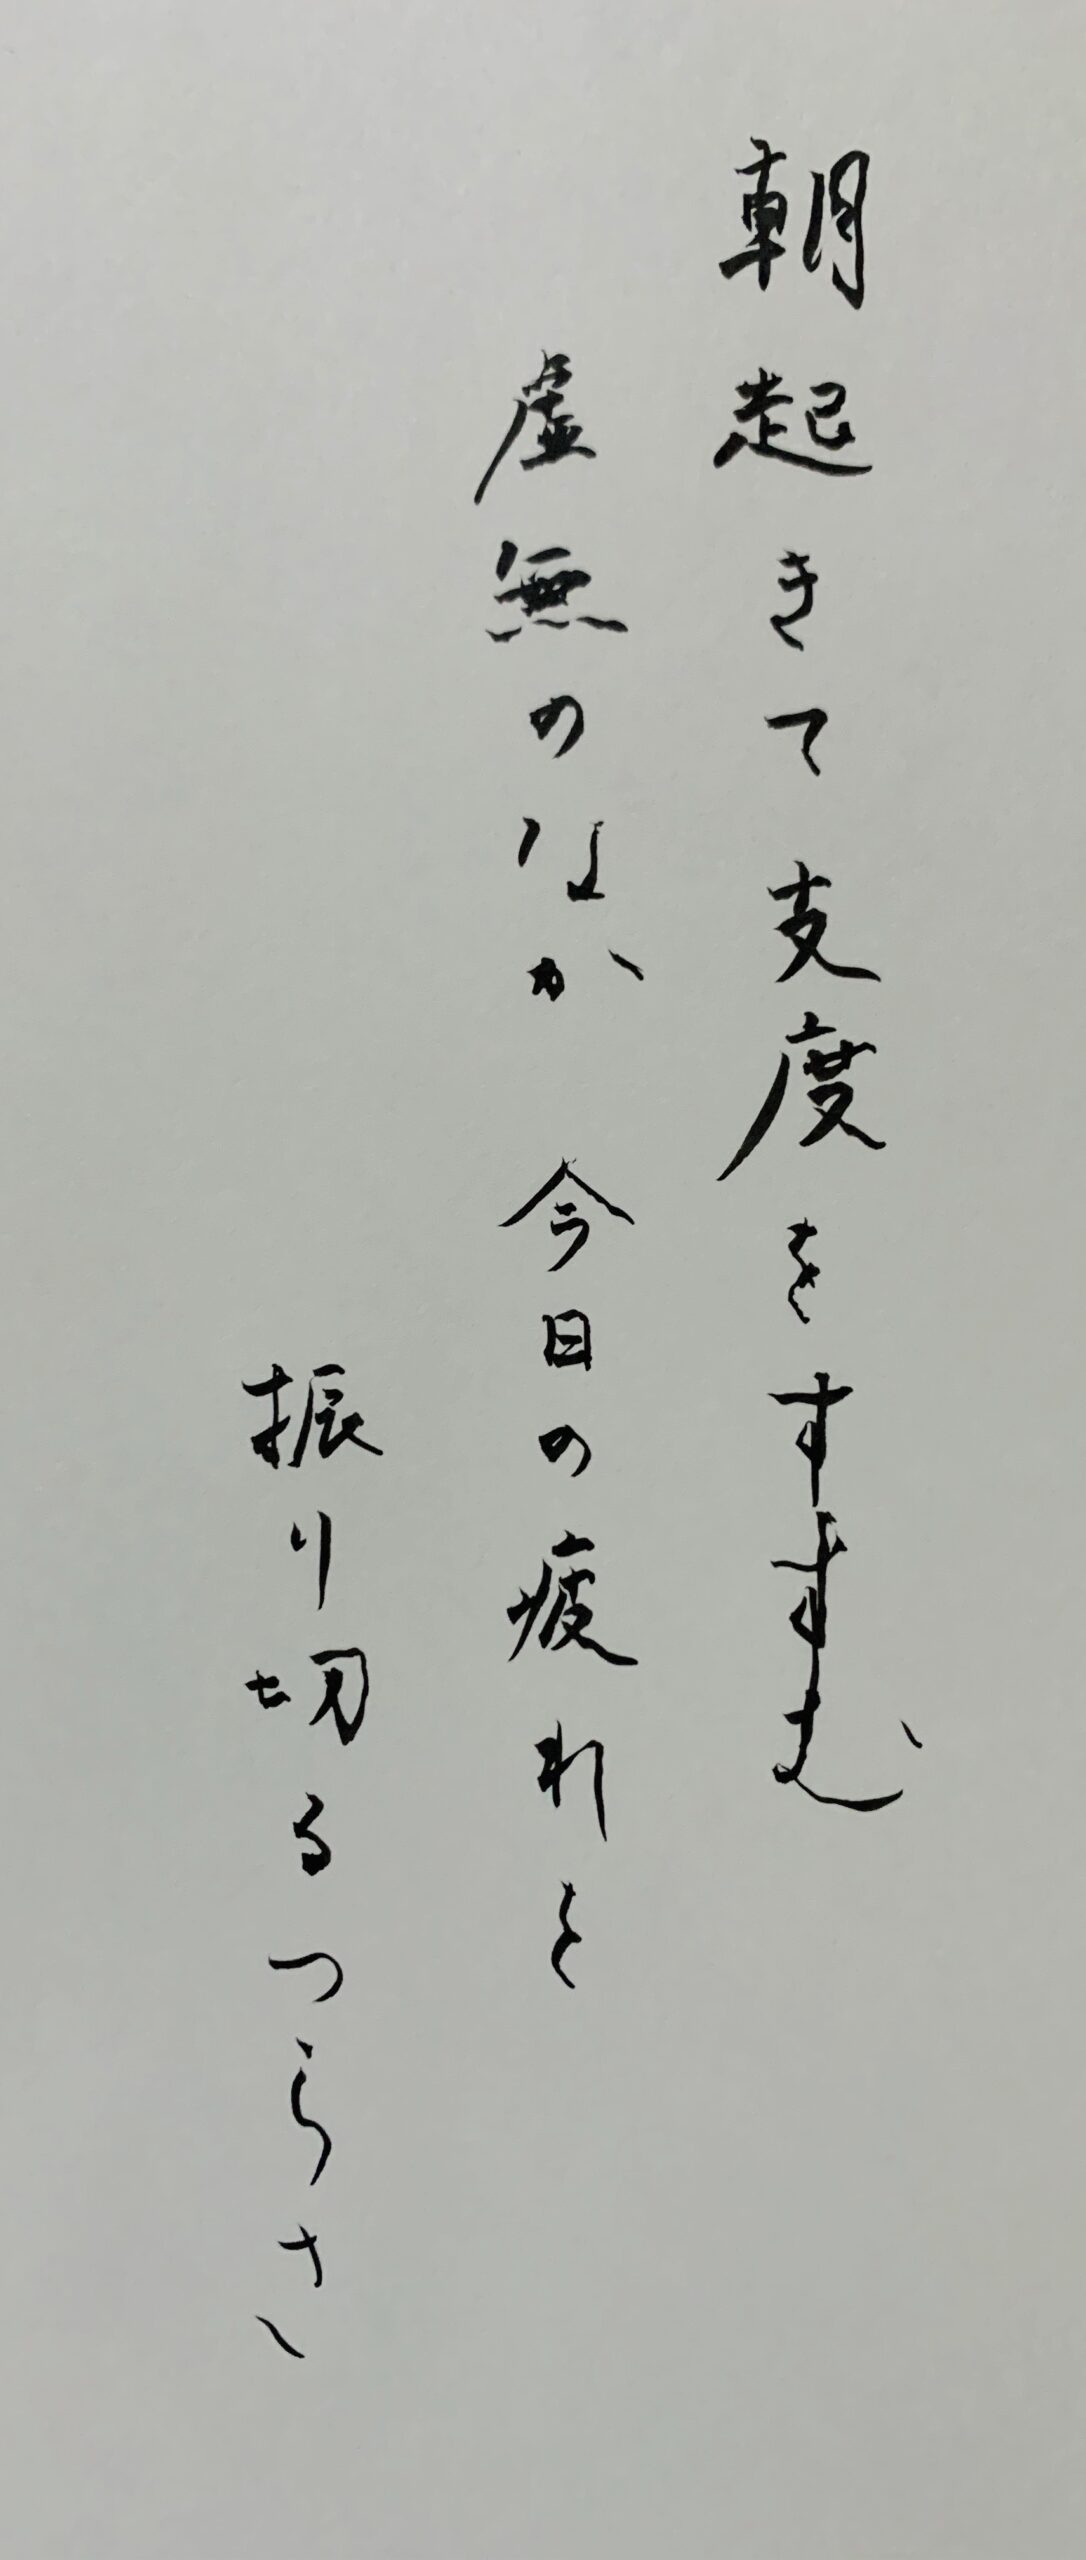 朝起きて支度をすすむ
虚無のなか今日の疲れと
振り切るつらさ